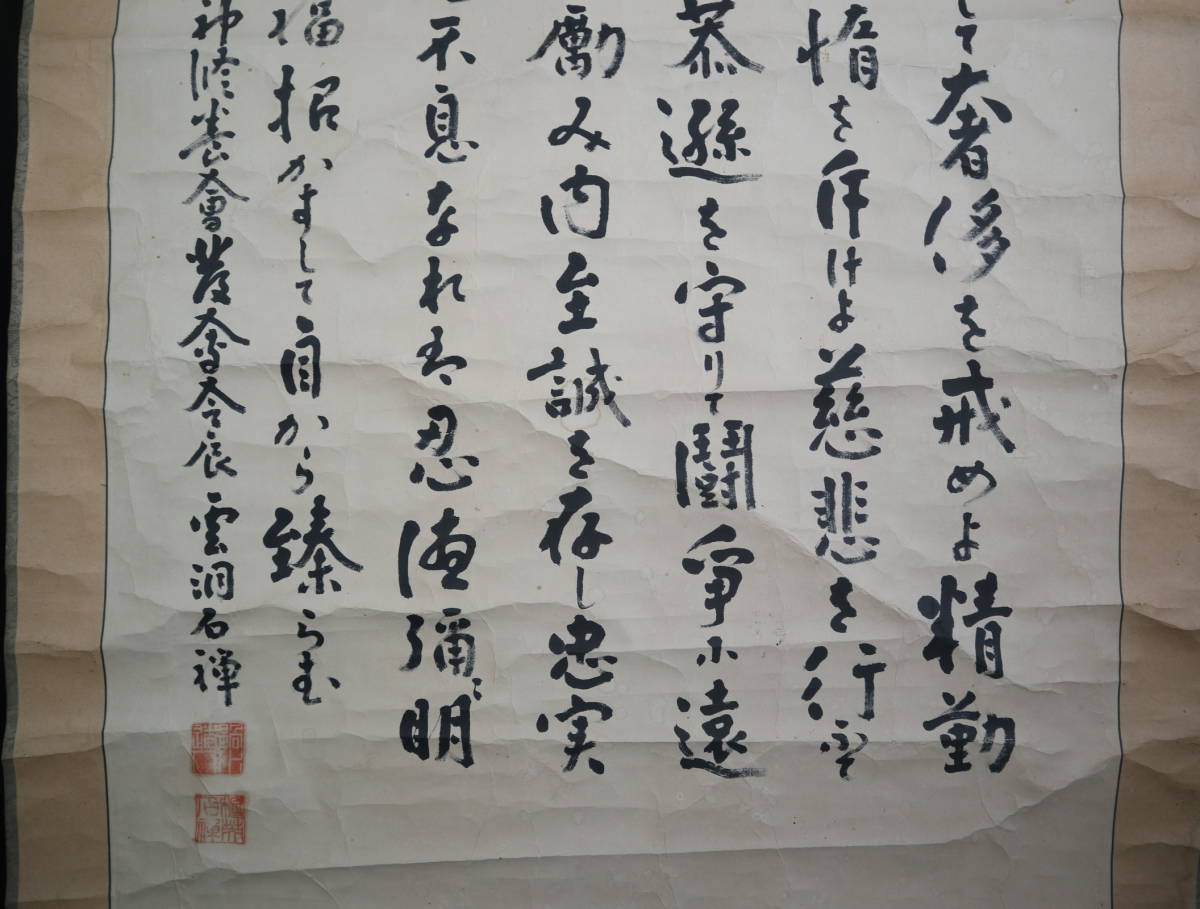 して奢侈を戒めよ精勤
惰を斥けよ慈悲を行ひて
恭遜を守りて闘争に遠
励み内至誠を存し忠実
不息なれば忍徳弥〻明
福招かすして自から臻らむ
神修養会発会令辰雲洞石禅